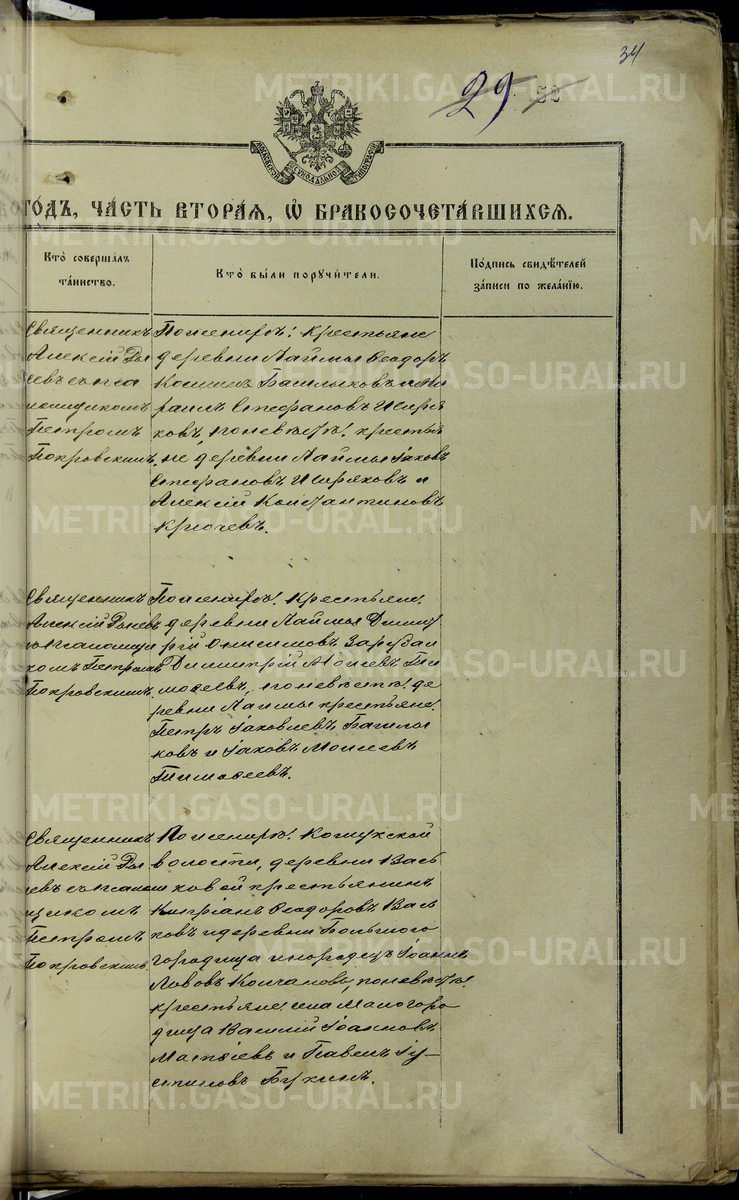 34
29
53
годъ, часть вторая, ѡ бракосочетавшихся.
Кто̀ соверша́лъ
та́инство.
Кто̀ бы́ли поручи́тели.
По́дпись свидѣ́телей
за́писи по жела́нїю.
Священникъ
Алексій Ды
евъ съ пса
ломщикомъ
Петромъ
Покровскимъ.
По женихѣ: крестьяне
деревни Лаймы Ѳеодоръ
Баишлыковъ и Ми
хаилъ Стефановъ Иширя
ковъ, по невѣстѣ: крестья
не деревни Лаймы Іаковъ
Стефановъ Ишряковъ и
Алексій Константиновъ
Крючевъ.
Священникъ
Алексій Дыевъ
съ псаломщи
комъ Петромъ
Покровскимъ
По женихѣ: Крестьяне:
деревни Лаймы Дими
трій Онисимовъ
Димитрій Моисеевъ Ти
моѳеевъ, по невѣстѣ: де
ревни Лаймы крестьяне:
Петръ Іаковлевъ Башлы
ковъ и Іаковъ Моисеевъ
Тимоѳеевъ.
Священникъ
Алексій Ды
евъ съ псалом
щикомъ
Петромъ
Покровскимъ
По женихѣ: Кошукской
волости, деревни Вась
ковой крестьянинъ
Кипріанъ Ѳеодоровъ Вась
ковъ и деревни Большого
городища инородецъ Іоаннъ
Львовъ Колчановъ, по невѣстѣ:
крестьяне села Малогоро
дища Василій Іоанновъ
Матѳіевъ и Павелъ Іу-
стиновъ Бухинъ.
METRIKI.GASO-URAL.RU